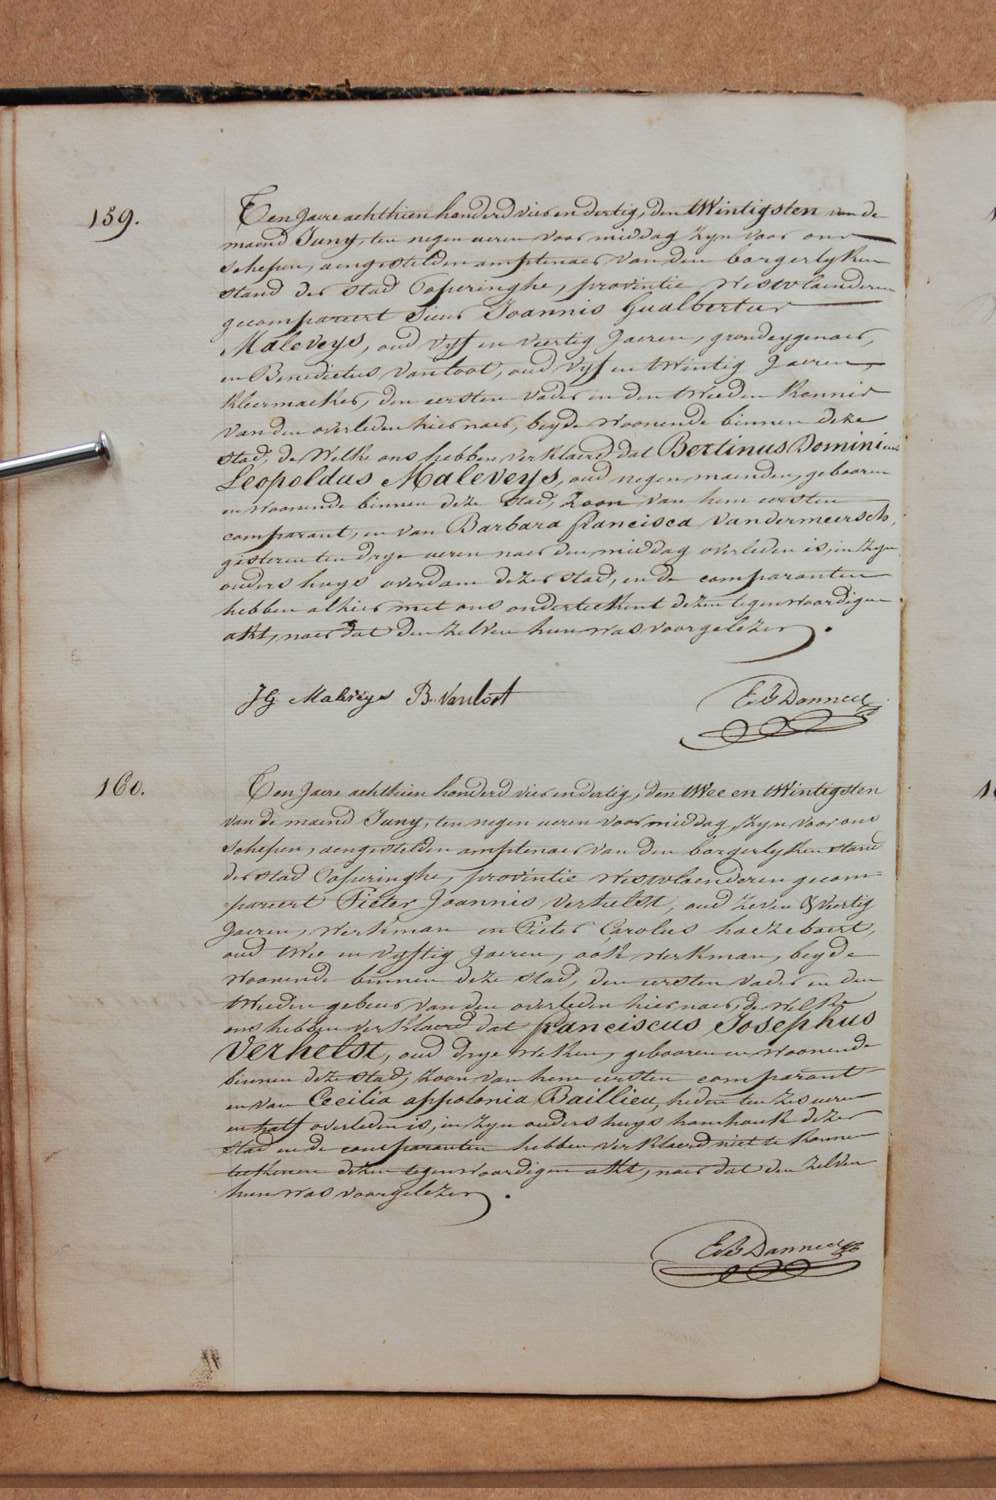 159.
Ten jaere achthien honderd vier en dertig, den twintigsten van de
maend Juny, ten negen ueren voor middag zyn voor ons
schepen, aengestelden amptenaer van den borgerlyken
stand der stad Poperinghe, provintie Westvlaenderen
gecompareert Sieur Joannis Gualbertus
Maleveys, oud vyf en veertig jaeren, grondeygenaer,
en Benedictus Vanloot, oud vyf en twintig jaeren,
kleermaeker, den eersten vader en den tweeden kennis
van den overleden hier naer, beyde woonende binnen deze
stad, de welke ons hebben verklaerd dat Bertinus Dominicus
Leopoldus Maleveys, oud negen maenden, gebooren
en woonende binnen deze stad, zoon van hem eersten
comparant, en van Barbara francisca Vandermeersch,
gisteren ten drye ueren naer den middag overleden is, in zyn
ouders huys overdam dezer stad, en de comparanten
hebben alhier met ons onderteekent dezen tegenwoordigen
akt, naer dat den zelven hun was voorgelezen.
JG Maleveys B. Vanloot
160.
Ten jaere achthien honderd vier en dertig, den twee en twintigsten
van de maend Juny, ten negen ueren voor middag, zyn voor ons
schepen, aengestelden amptenaer van den borgerlyken stand
der stad Poperinghe, provintie Westvlaenderen gecom=
pareert Pieter Joannis Verhelst, oud zeven & veertig
jaeren, werkman en Pieter Carolus haezebaert,
oud twee en vyftig jaeren, ook werkman, beyde
woonende binnen deze stad, den eersten vader en den
tweeden gebeur van den overleden hier naer, de welke
ons hebben verklaerd dat franciscus Josephus
Verhelst, oud drye weken, gebooren en woonende
binnen deze stad, zoon van hem eersten comparant
en van Cecilia appolonia Baillieu, heden ten zes ueren
en half overleden is, in zyn ouders huys hamhouk dezer
stad en de comparanten hebben verklaerd niet te konnen
teekenen dezen tegenwoordigen akt, naer dat den zelven
hun was voorgelezen.